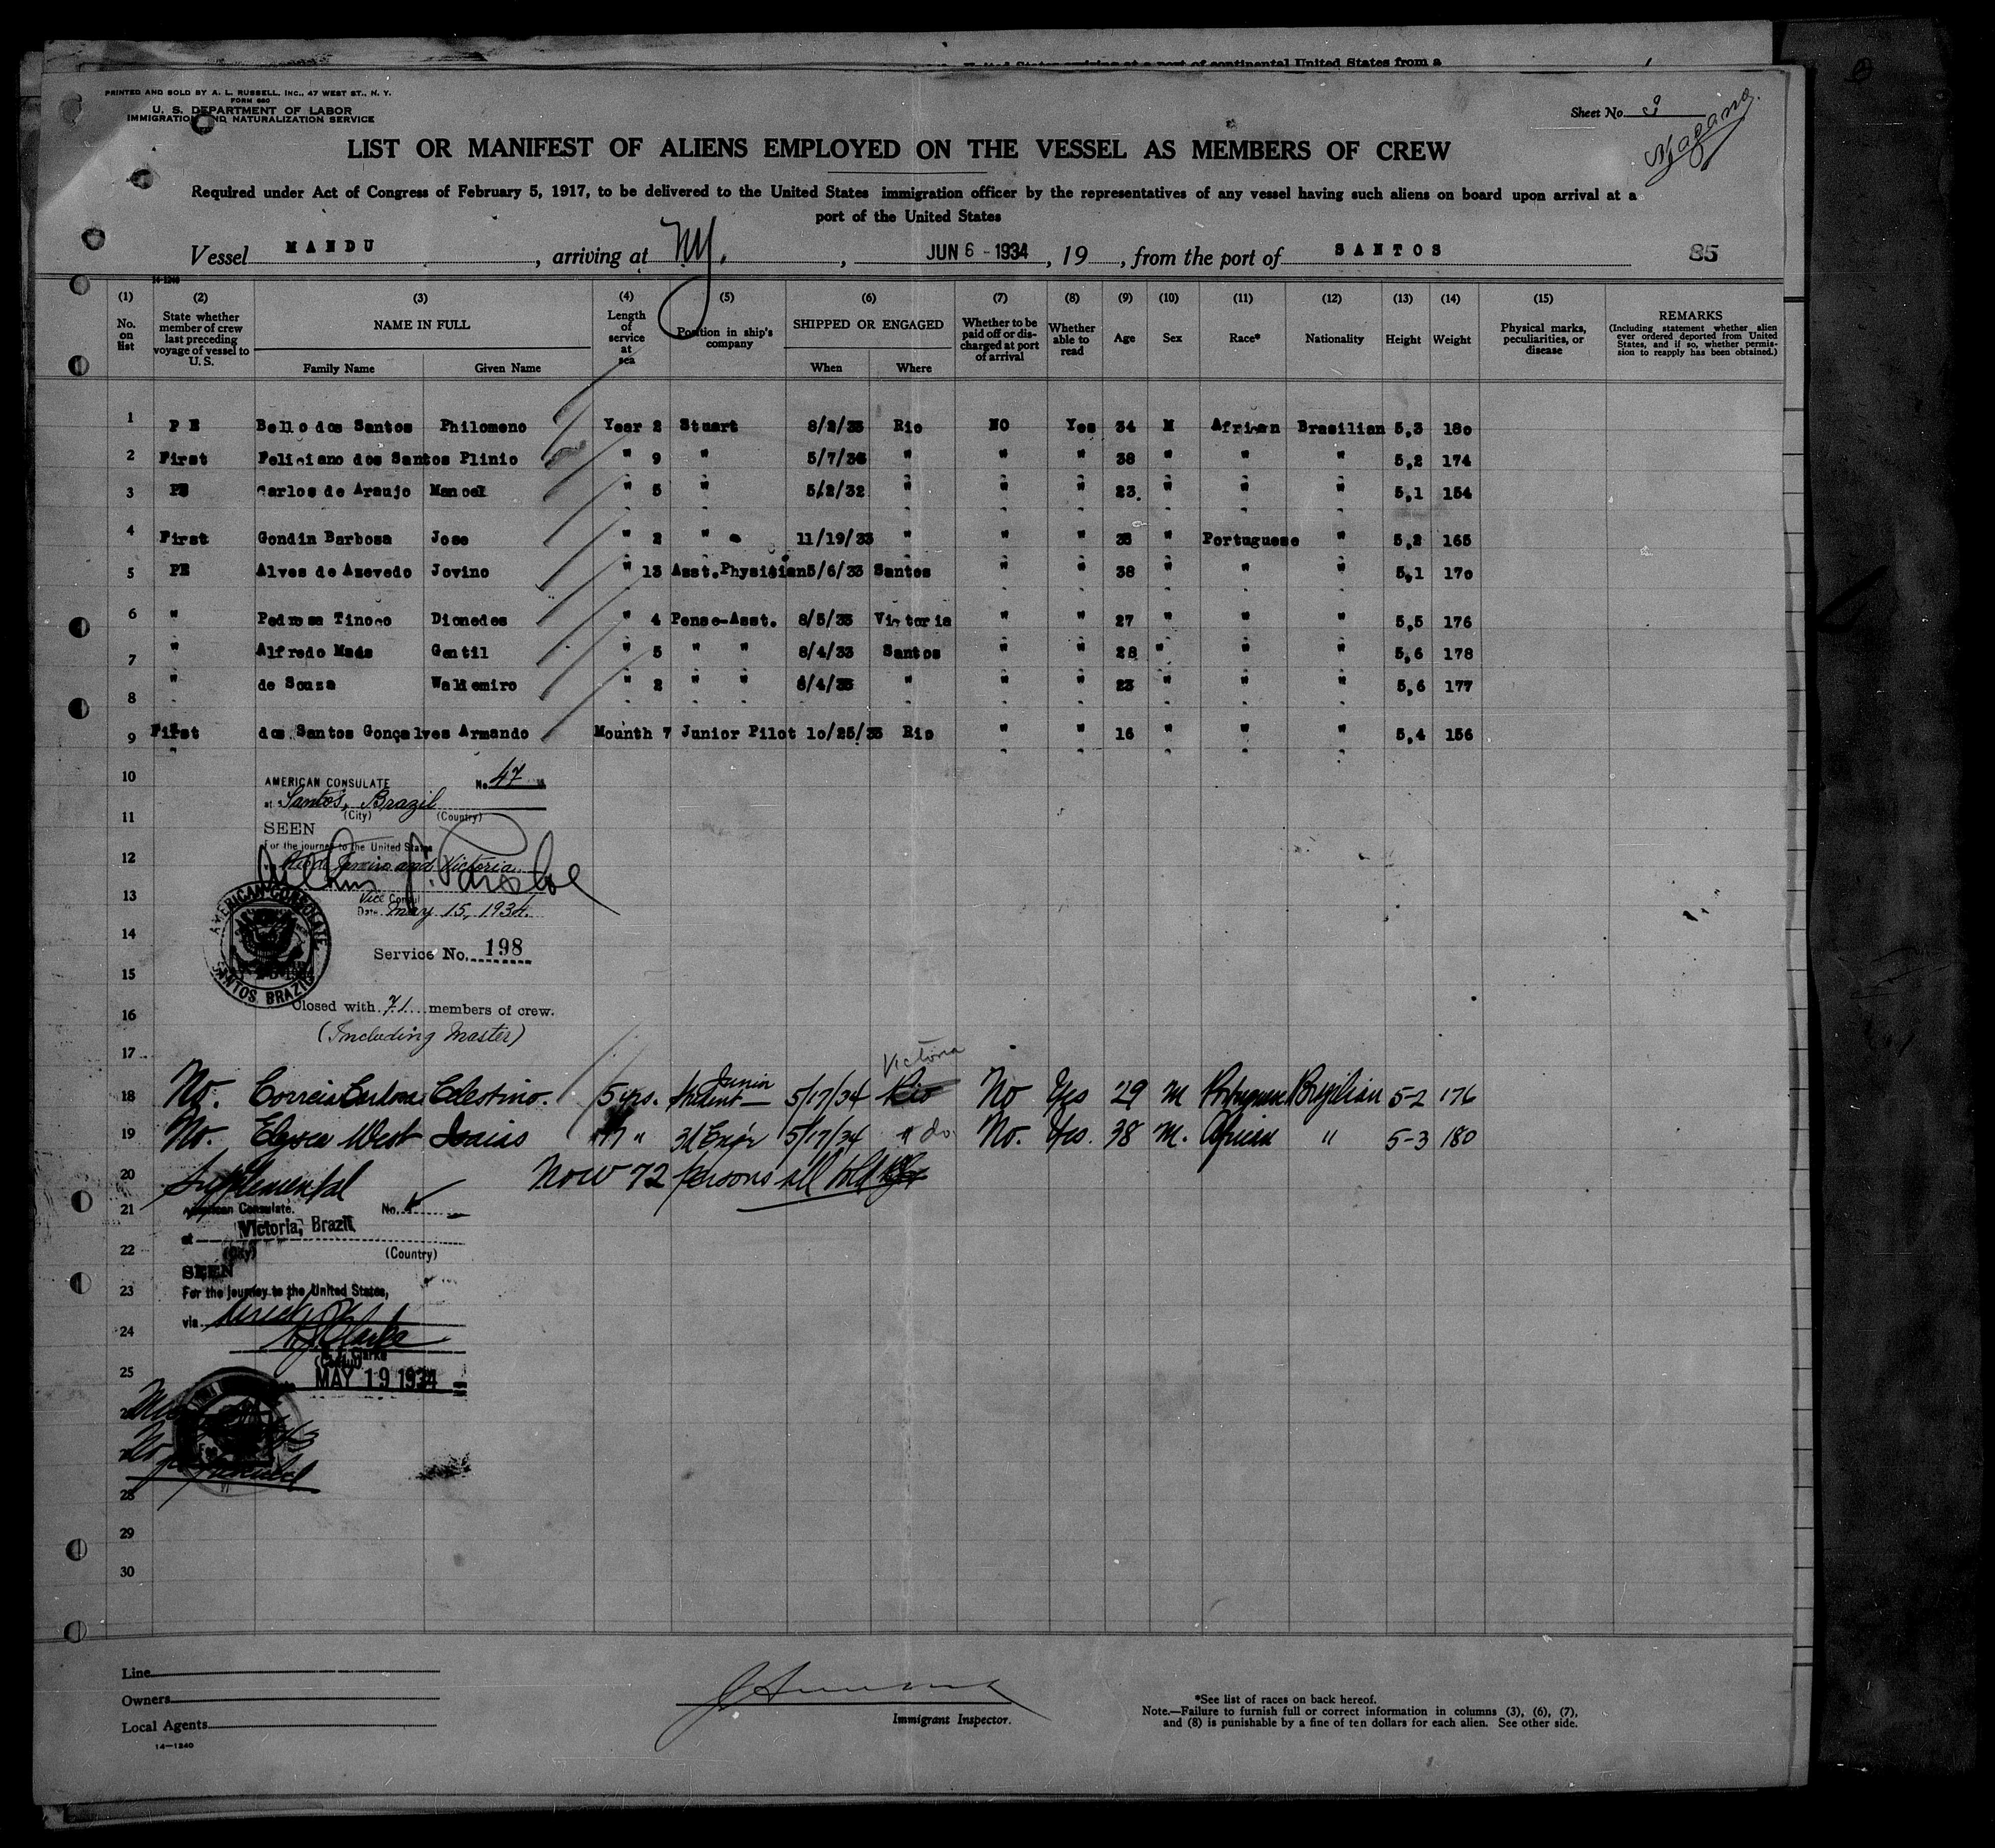 United States arriving at a port of continental United States from a
PRINTED AND SOLD BY A. L. RUSSELL, INC., 47 WEST ST., N. Y.
FORM 680
U. S. DEPARTMENT OF LABOR
IMMIGRATION AND NATURALIZATION SERVICE
Sheet No. 3
LIST OR MANIFEST OF ALIENS EMPLOYED ON THE VESSEL AS MEMBERS OF CREW
Required under Act of Congress of February 5, 1917, to be delivered to the United States immigration officer by the representatives of any vessel having such aliens on board upon arrival at a
port of the United States
Vessel MANDU, arriving at N.Y., JUN 6 - 1934, 19, from the port of SANTOS 85
14-1240
(1) (2) (3) (4) (5) (6) (7) (8) (9) (10) (11) (12) (13) (14) (15)
No. on list State whether member of crew last preceding voyage of vessel to U. S. NAME IN FULL Family Name Given Name Length of service at sea Position in ship's company SHIPPED OR ENGAGED When Where Whether to be paid off or discharged at port of arrival Whether able to read Age Sex Race* Nationality Height Weight Physical marks, peculiarities, or disease REMARKS (Including statement whether alien ever ordered deported from United States, and if so, whether permission to reapply has been obtained.)
1 P E Bello dos Santos Philomeno Year 2 Stuart 8/2/33 Rio NO Yes 34 M African Brasilian 5,3 180
2 First Feliciano dos Santos Plinio " 9 " 5/7/33 " " " 38 " " " 5,2 174
3 PE Carlos de Araujo Manoel " 5 " 5/2/32 " " " 23. " " " 5,1 154
4 First Gondin Barbosa Jose " 2 " 11/19/33 " " " 38 " Portuguese " 5,2 165
5 PE Alves de Azevedo Jovino " 13 Asst.Physitian 5/6/33 Santos " " 38 " " " 5,1 170
6 " Pedrosa Tinoco Dionedes " 4 Pense-Asst. 8/5/33 Victoria " " 27 " " " 5,5 176
7 " Alfredo Maia Gentil " 5 " " 8/4/33 Santos " " 28 " " " 5,6 178
8 " de Souza Waldemiro " 2 " " 8/4/33 " " " 23 " " " 5,6 177
9 First dos Santos Gonçalves Armando Mounth 7 Junior Pilot 10/25/33 Rio " " 16 " " " 5,4 156
10
AMERICAN CONSULATE No. 47
at Santos, Brazil
(City) (Country)
11
SEEN
For the journey to the United States
12
Rio de Janeiro and Victoria
13
Vice Consul
Date May 15, 1934.
AMERICAN CONSULATE
SANTOS BRAZIL
14
Service No. 198
15
Closed with 71 members of crew.
16
(Including Master)
17
Victoria
18 No. Correia Celestino. 5 yrs. Junior Student 5/17/34 Rio No Yes 29 M Portuguese Brazilian 5-2 176
19 No. West Isaias 17 " 3d Engr 5/17/34 " do. No. Yes. 38 M. African " 5-3 180
20 Supplemental Now 72 persons all told
21 American Consulate. No.
at Victoria, Brazil
22 (City) (Country)
SEEN
23 For the journey to the United States,
via direct
24 Clarke
Clarke
(Consul)
25 MAY 19 1934
28
29
30
Line
Owners
Local Agents
14-1240
Immigrant Inspector.
*See list of races on back hereof.
Note.—Failure to furnish full or correct information in columns (3), (6), (7),
and (8) is punishable by a fine of ten dollars for each alien. See other side.